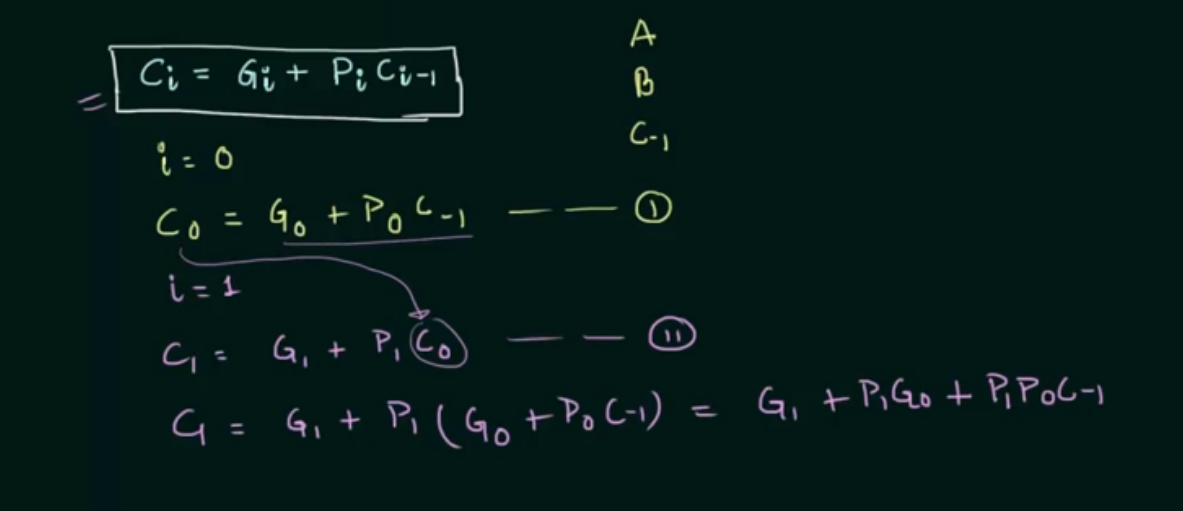 Cᵢ = Gᵢ + Pᵢ Cᵢ₋₁
A
B
C₋₁
i = 0
C₀ = G₀ + P₀ C₋₁ —— ①
i = 1
C₁ = G₁ + P₁ C₀ —— ⑪
C₁ = G₁ + P₁ (G₀ + P₀ C₋₁) = G₁ + P₁G₀ + P₁P₀C₋₁